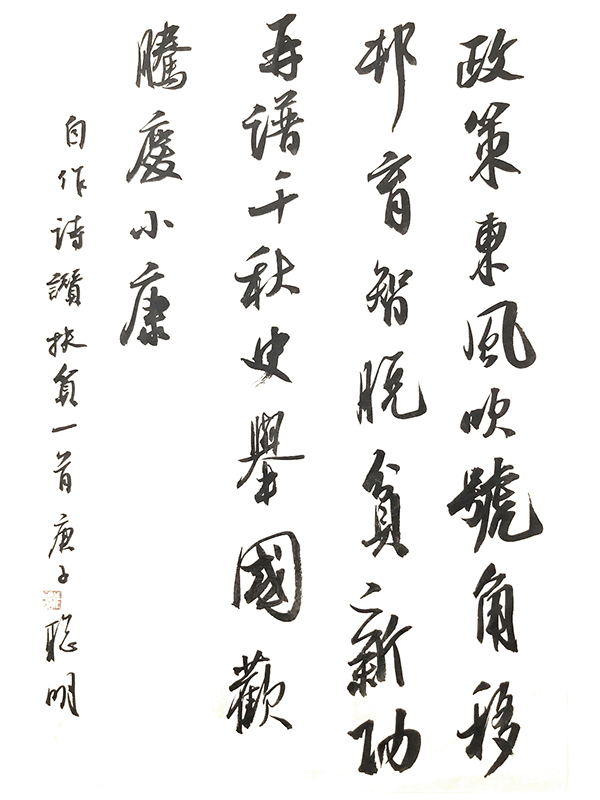 政策東風吹號角移
邨育智脫貧新功
再譜千秋史舉國歡
騰慶小康
自作詩讚扶貧一首庚子聰明